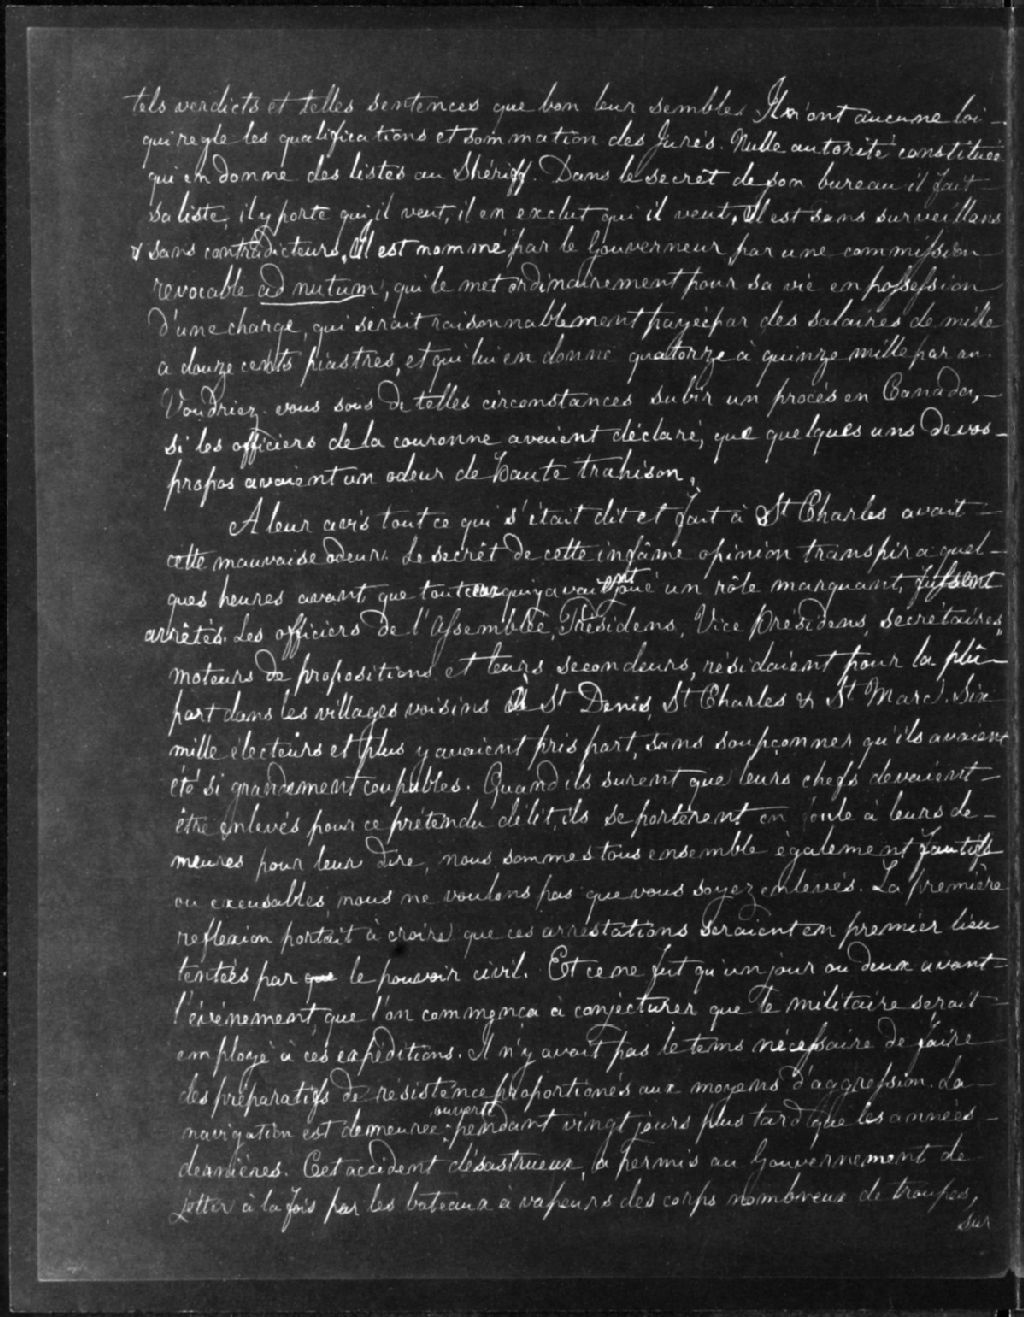 tels verdicts et telles sentences que bon leur semble. Ils n'ont aucune loi
qui regle les qualifications et sommation des Jurés. Nulle autorité constituée
qui en donne des listes au Shériff. Dans le secret de son bureau il fait
sa liste, il y porte qui il veut, il en exclut qui il veut, Il est sans surveillans
& sans contradicteurs, Il est nommé par le Gouverneur par une commission
revocable ad nutum, qui le met ordinairement pour sa vie en possession
d'une charge, qui serait raisonnablement payée par des salaires de mille
a douze cents piastres, et qui lui en donne quatorze à quinze mille par an.
Voudriez vous sous de telles circonstances subir un procès en Canada,
si les officiers de la couronne avaient déclaré, que quelques uns de vos
propos avaient un odeur de haute trahison,
A leur avis tout ce qui s'était dit et fait à St Charles avait
cette mauvaise odeur. Le secrêt de cette infâme opinion transpira quel-
ques heures avant que tout ceux qui y avaient joué un rôle marquant, fussent
arrêtés. Les officiers de l'Assemblée, Présidens, Vice Présidens, secrétaires,
moteurs de propositions et leurs secondeurs, résidaient pour la plû-
part dans les villages voisins de St Denis, St Charles & St Marc. Six
mille électeurs et plus y avaient pris part, sans soupçonner qu'ils avaient
été si grandement coupables. Quand ils surent que leurs chefs devaient
être enlevés pour ce prétendu délit, ils se portèrent en foule à leurs de-
meures pour leur dire, nous sommes tous ensemble également fautifs
ou excusables, nous ne voulons pas que vous soyez enlevés. La première
reflexion portait à croire que ces arrestations seraient en premier lieu
tentées par que le pouvoir civil. Et ce ne fut qu'un jour ou deux avant
l'évènement, que l'on commença à conjecturer que le militaire serait
employé à ces expéditions. Il n'y avait pas le tems nécessaire de faire
des préparatifs de résistence proportionés aux moyens d'aggression. La
navigation est demeurée ouverte pendant vingt jours plus tard que les années
dernières. Cet accident désastrueux, a permis au Gouvernement de
jetter à la fois par les bateaux à vapeurs des corps nombreux de troupes,
sur